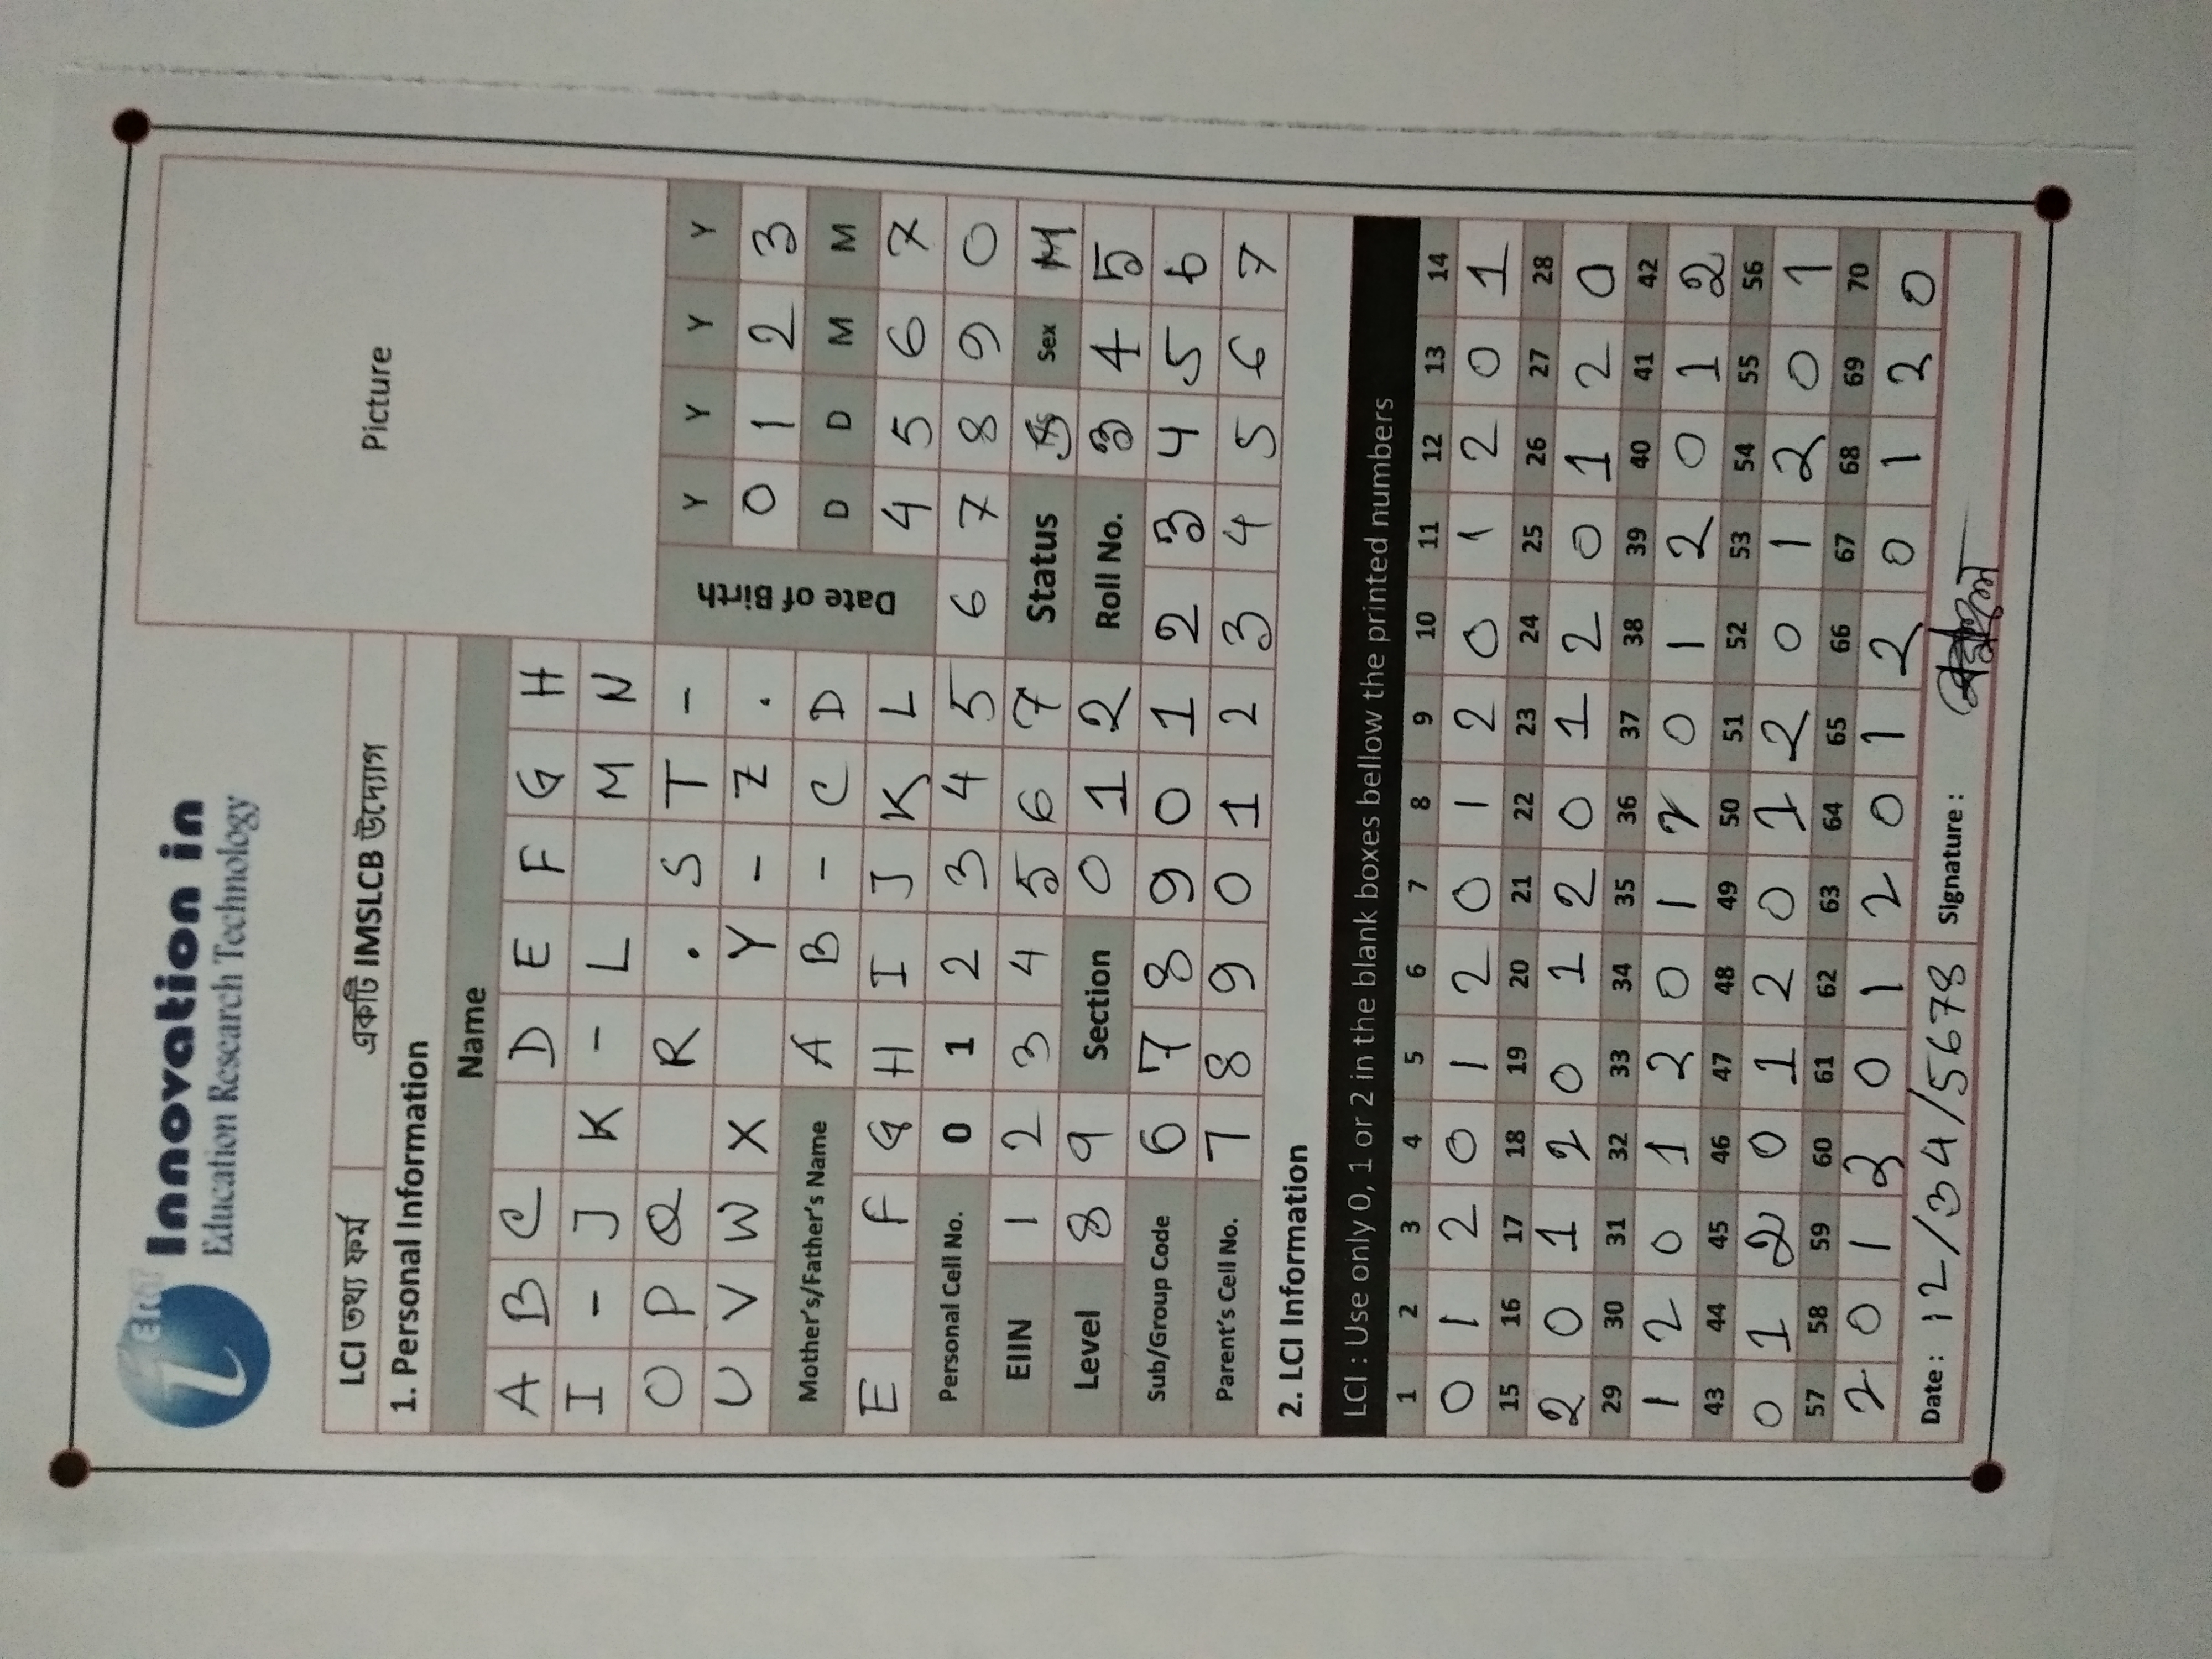 ERT
Innovation in
Education Research Technology
Picture
LCI তথ্য ফর্ম একটি IMSLCB উদ্যোগ
1. Personal Information
Name
A B C D E F G H
I - J K - L M N
O P Q R . S T -
U V W X Y - Z .
Date of Birth
Y Y Y Y
0 1 2 3
D D M M
4 5 6 7
Mother's/Father's Name A B - C D
E F G H I J K L
Personal Cell No. 0 1 2 3 4 5 6 7 8 9 0
EIIN 1 2 3 4 5 6 7 Status Sex M
Level 8 9 Section 0 1 2 Roll No. 3 4 5
Sub/Group Code 6 7 8 9 0 1 2 3 4 5 6
Parent's Cell No. 7 8 9 0 1 2 3 4 5 6 7
2. LCI Information
LCI : Use only 0, 1 or 2 in the blank boxes bellow the printed numbers
1 2 3 4 5 6 7 8 9 10 11 12 13 14
0 1 2 0 1 2 0 1 2 0 1 2 0 1
15 16 17 18 19 20 21 22 23 24 25 26 27 28
2 0 1 2 0 1 2 0 1 2 0 1 2 0
29 30 31 32 33 34 35 36 37 38 39 40 41 42
1 2 0 1 2 0 1 2 0 1 2 0 1 2
43 44 45 46 47 48 49 50 51 52 53 54 55 56
0 1 2 0 1 2 0 1 2 0 1 2 0 1
57 58 59 60 61 62 63 64 65 66 67 68 69 70
2 0 1 2 0 1 2 0 1 2 0 1 2 0
Date : 12/34/5678 Signature :